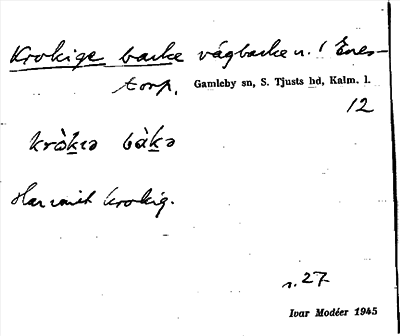 Krokige backe vägbacke n. i Enes-
torp. Gamleby sn, S. Tjusts hd, Kalm. l.
12
krò̱kıə bàḵə
Har varit krokig.
r. 27
Ivar Modéer 1945